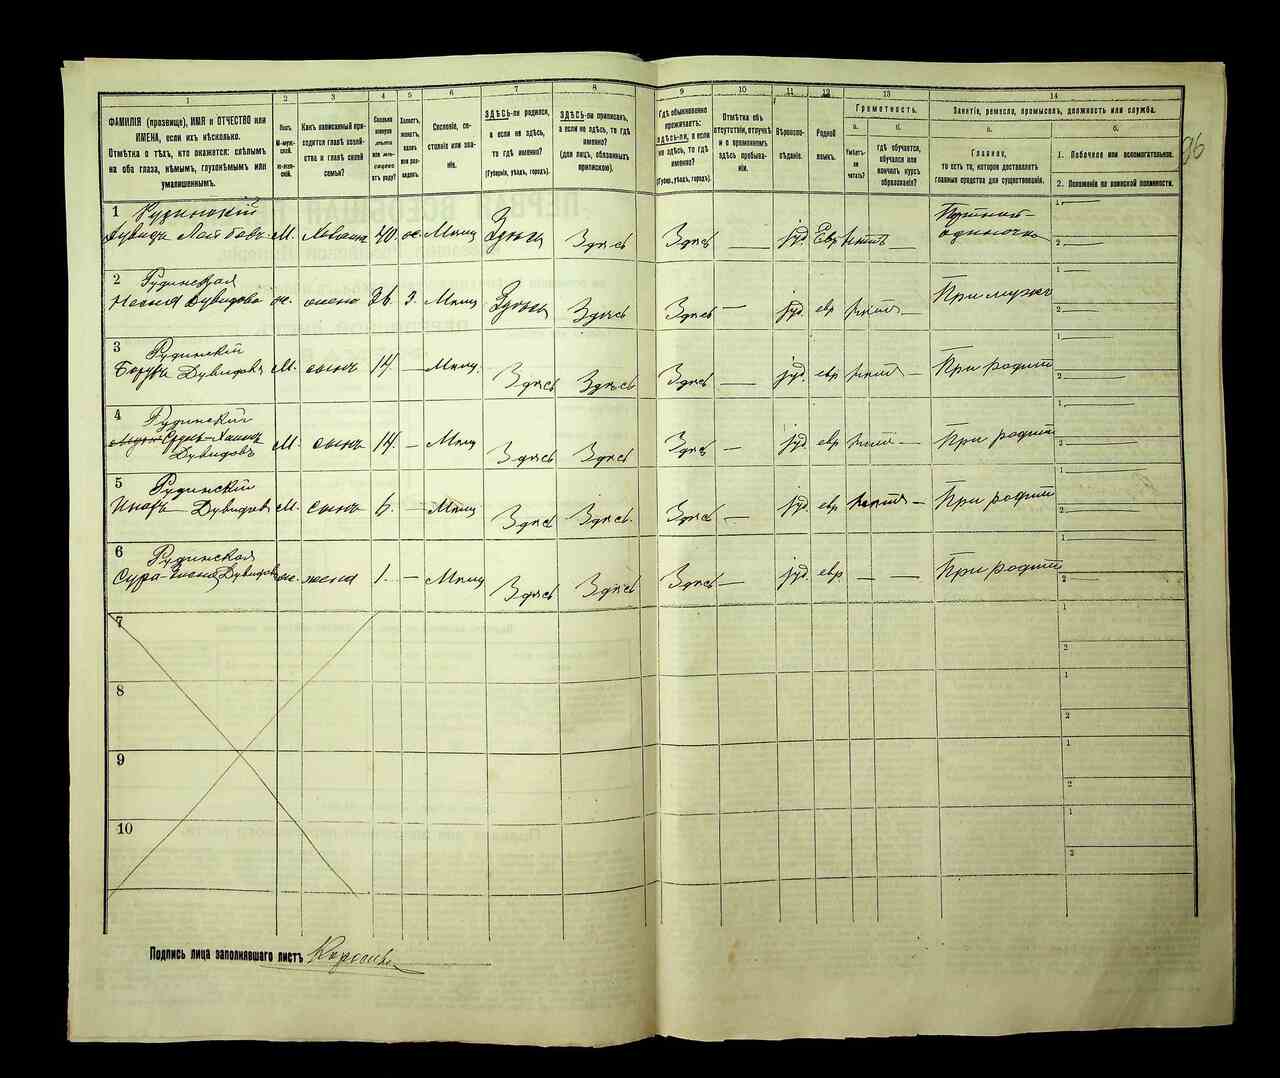 1 2 3 4 5 6 7 8 9 10 11 12 13 14
ФАМИЛІЯ (прозвище), ИМЯ и ОТЧЕСТВО или
ИМЕНА, если ихъ нѣсколько.
Отмѣтка о тѣхъ, кто окажется: слѣпымъ
на оба глаза, нѣмымъ, глухонѣмымъ или
умалишеннымъ.
Полъ.
М-мужской.
Ж-женскій.
Какъ записанный приходится
главѣ хозяйства
и главѣ своей
семьи?
Сколько
минуло
лѣтъ
или мѣсяцевъ
отъ роду?
Холостъ,
женатъ,
вдовъ
или разведенъ.
Сословіе, состояніе
или званіе.
ЗДѢСЬ-ли родился,
а если не здѣсь,
то гдѣ именно?
(Губернія, уѣздъ, городъ).
ЗДѢСЬ-ли приписанъ,
а если не здѣсь, то гдѣ
именно?
(для лицъ, обязанныхъ
припискою).
Гдѣ обыкновенно
проживаетъ:
здѣсь-ли, а если
не здѣсь, то гдѣ
именно?
(Губер., уѣздъ, городъ).
Отмѣтка объ
отсутствіи, отлучкѣ
и о временномъ
здѣсь пребываніи.
Вѣроисповѣданіе.
Родной
языкъ.
Грамотность.
а. б.
Умѣетъ-ли
читать?
гдѣ обучается,
обучался или
кончилъ курсъ
образованія?
Занятіе, ремесло, промыселъ, должность или служба.
а. б.
Главное,
то есть то, которое доставляетъ
главныя средства для существованія.
1. Побочное или вспомогательное.
2. Положеніе по воинской повинности.
96
1 Рудинскій
Дувидъ М. 40. ж. Мѣщ Здѣсь Здѣсь Здѣсь — іуд. Евр — 1 — 2 —
одиночка
2 Рудинская
Дувидова ж. жена 36. З. Мѣщ Здѣсь Здѣсь Здѣсь — іуд. евр — При мужѣ 1 — 2 —
3 Рудинскій
Борухъ Дувидовъ М. сынъ 14. — Мѣщ. Здѣсь Здѣсь Здѣсь — іуд. евр — При родит 1 — 2 —
4 Рудинскій
М. сынъ 14. — Мѣщ Здѣсь Здѣсь Здѣсь — іуд. евр — При родит 1 — 2 —
Дувидовъ
5 Рудинскій
Дувидовъ М. сынъ 6. — Мѣщ Здѣсь Здѣсь. Здѣсь — іуд. евр — При родит 1 — 2 —
6 Рудинская
Сура- Дувидов ж. 1. — Мѣщ Здѣсь Здѣсь Здѣсь — іуд. евр — — При родит 1 — 2 —
7 1
2
8 1
2
9 1
2
10 1
2
Подпись лица заполнявшаго листъ